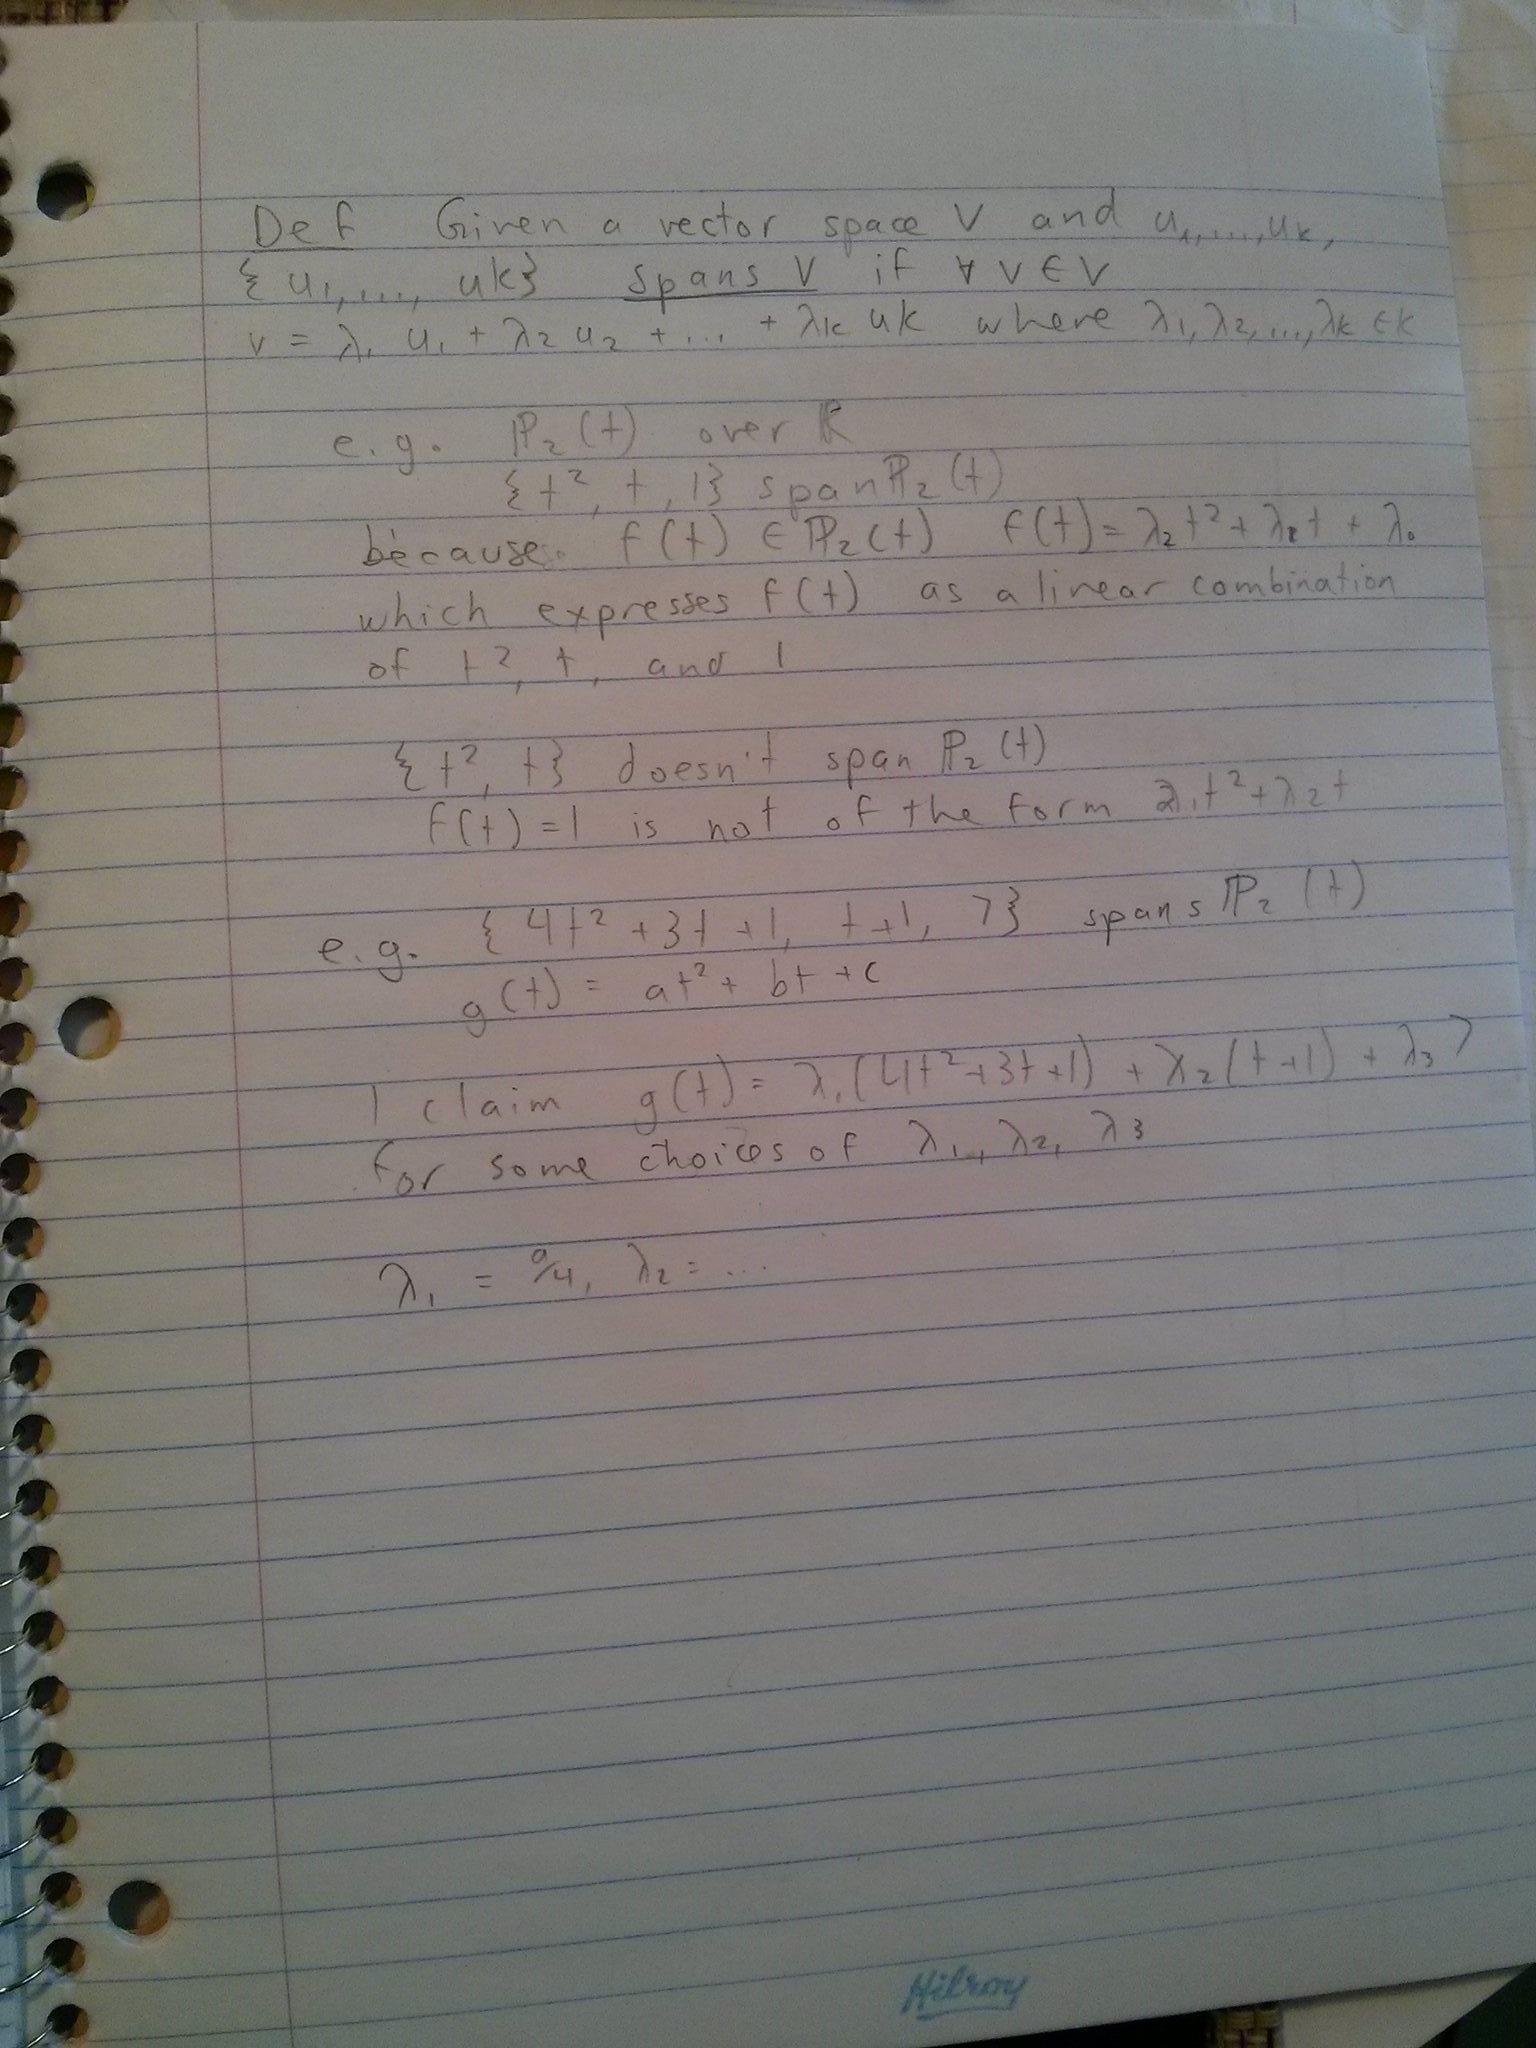 Def Given a vector space V and u₁,...,uₖ,
{u₁,..., uk} spans V if ∀ v ∈ V
v = λ₁ u₁ + λ₂ u₂ + ... + λk uk where λ₁, λ₂, ..., λk ∈ K
e.g. ℙ₂(t) over ℝ
{t², t, 1} span ℙ₂(t)
because f(t) ∈ ℙ₂(t) f(t) = λ₂t² + λ₁t + λ₀
which expresses f(t) as a linear combination
of t², t, and 1
{t², t} doesn't span ℙ₂(t)
f(t) = 1 is not of the form λ₁t² + λ₂t
e.g. {4t² + 3t + 1, t + 1, 7} spans ℙ₂(t)
g(t) = at² + bt + c
I claim g(t) = λ₁(4t² + 3t + 1) + λ₂(t + 1) + λ₃ 7
for some choices of λ₁, λ₂, λ3
λ₁ = a/4, λ₂ = ...
Hilroy